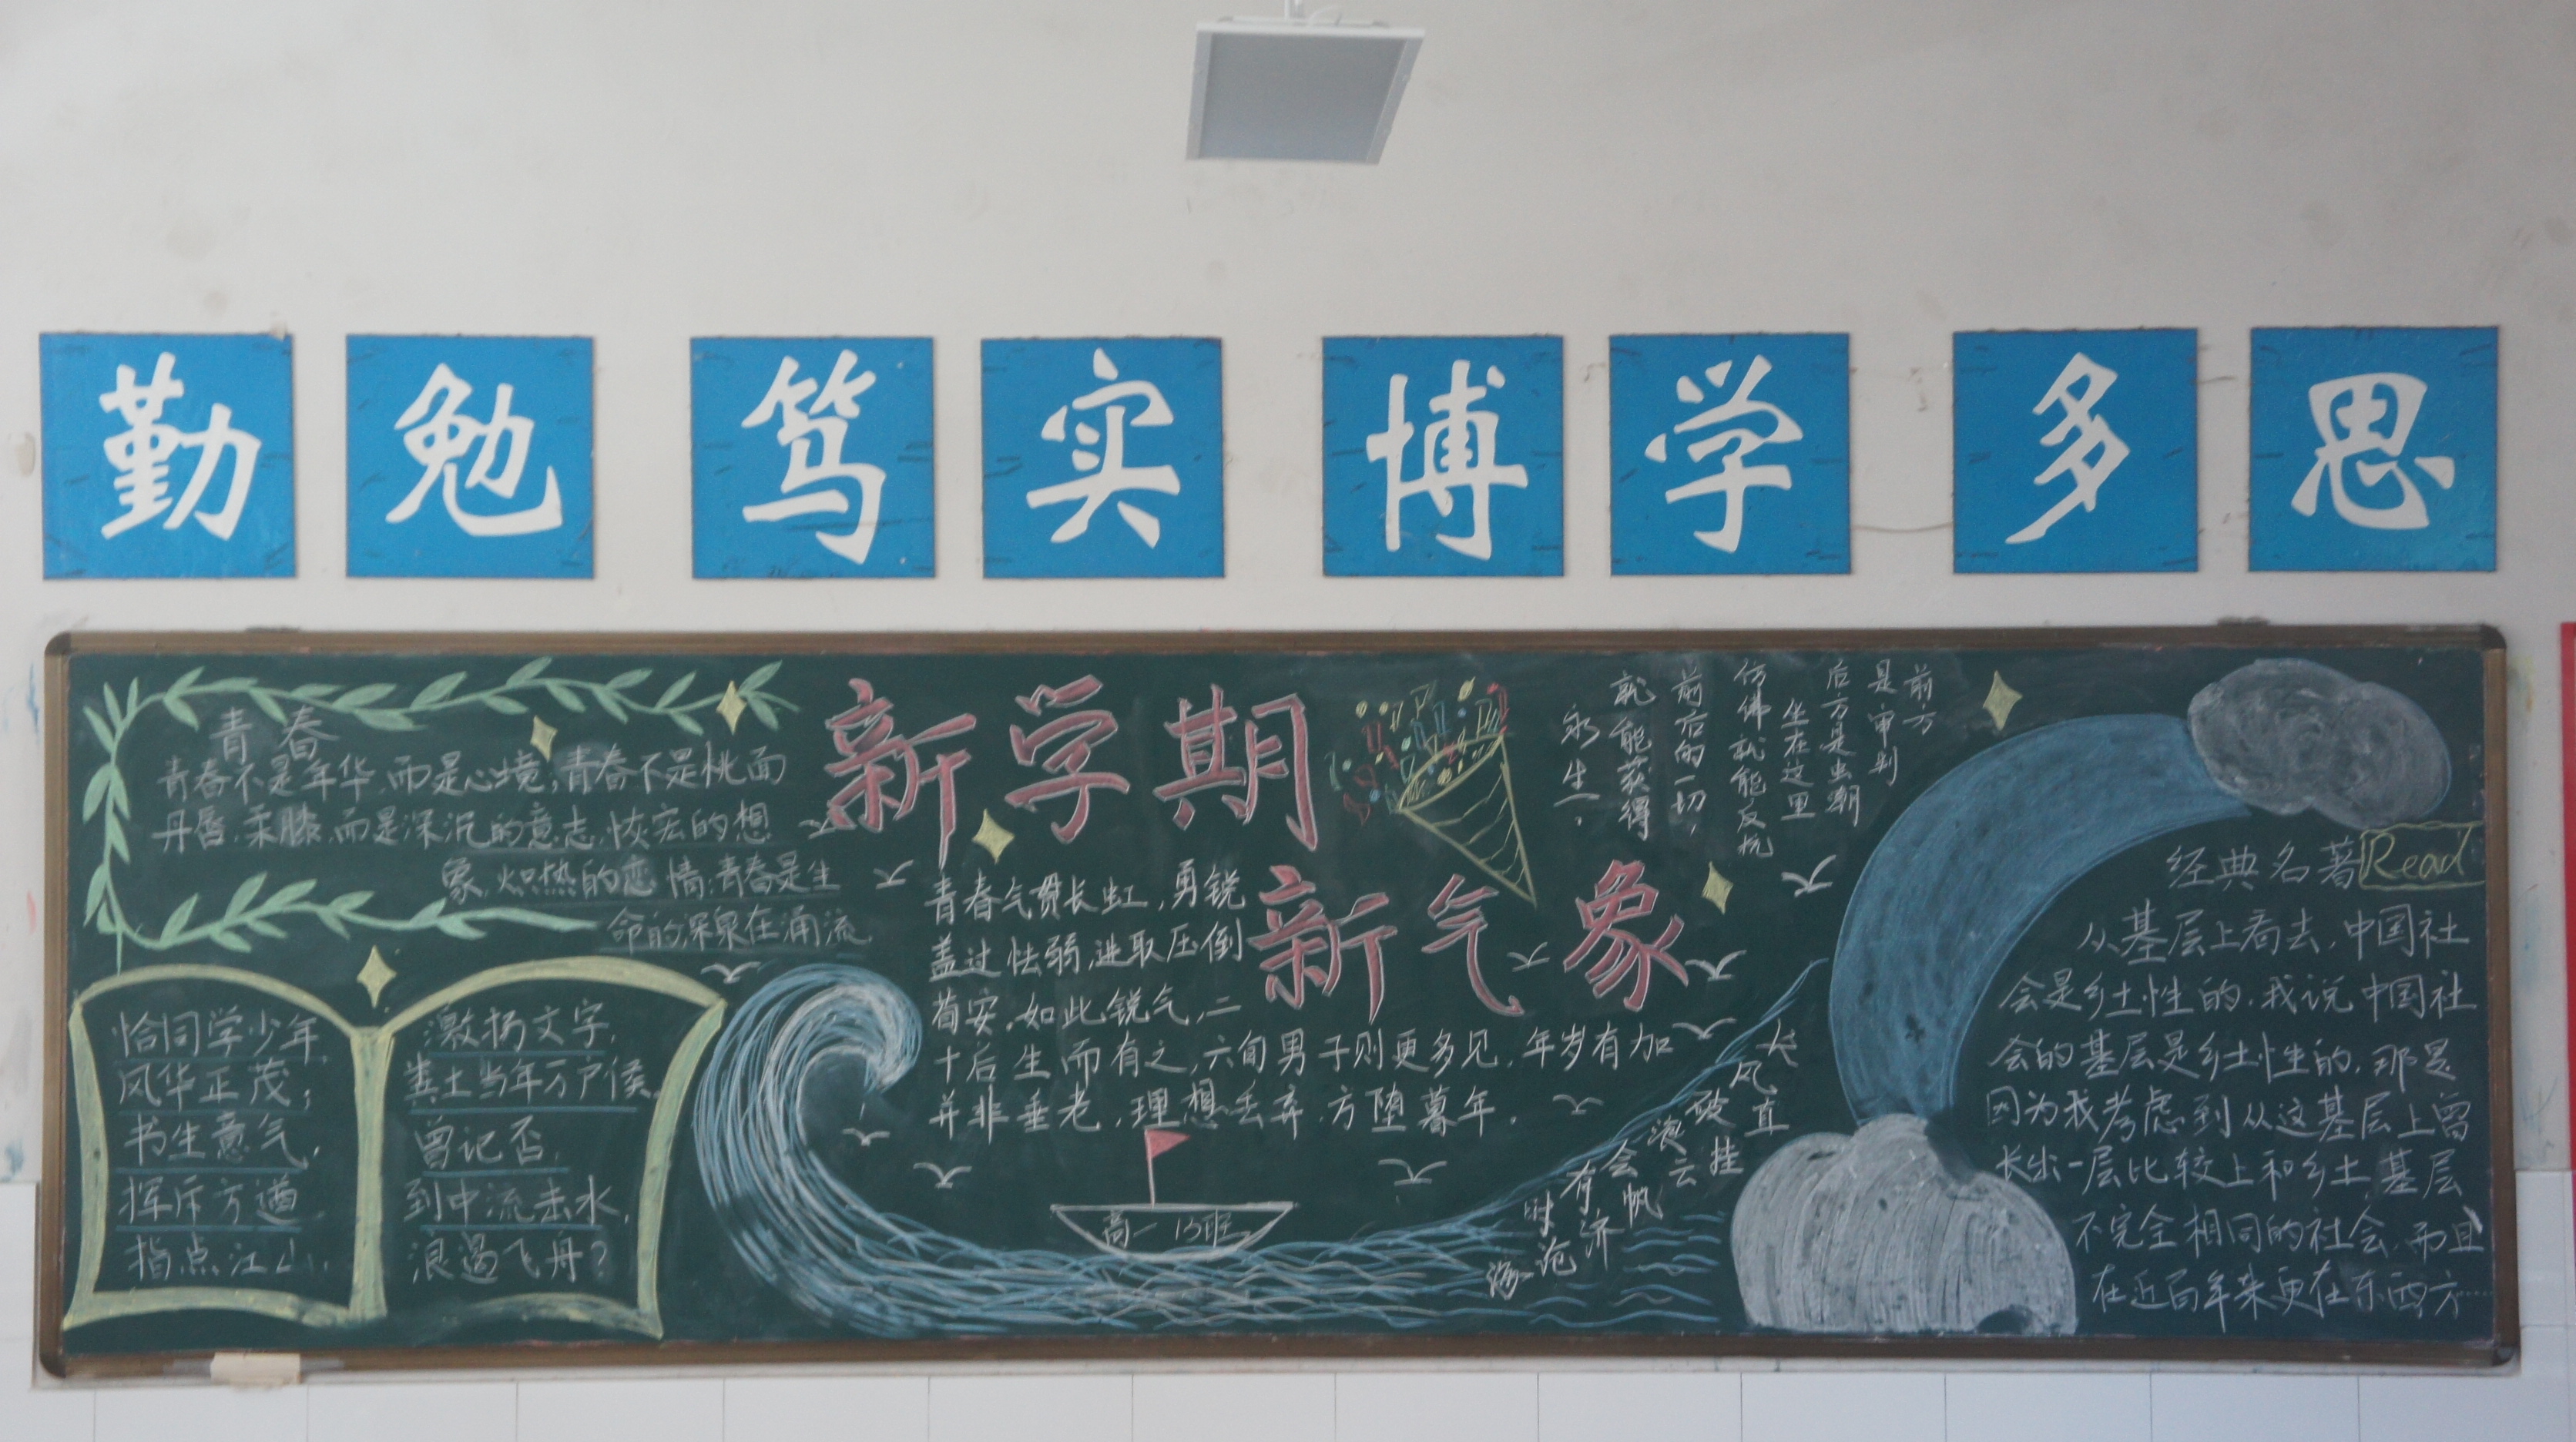 勤勉 笃实 博学 多思
青春
青春不是年华,而是心境;青春不是桃面
丹唇,柔膝,而是深沉的意志,恢宏的想
象,炽热的恋情;青春是生
命的深泉在涌流.
恰同学少年,
风华正茂;
书生意气,
挥斥方遒.
指点江山,
激扬文字,
粪土当年万户侯.
曾记否,
到中流击水,
浪遏飞舟?
新学期
新气象
青春气贯长虹,勇锐
盖过怯弱,进取压倒
苟安.如此锐气,二
十后生而有之,六旬男子则更多见,年岁有加
并非垂老,理想丢弃,方堕暮年.
高一13班
前方
是审判
后方是虫潮
坐在这里
仿佛就能反抗
前后的一切,
就能获得
永生.
长风破浪会有时
直挂云帆济沧海
经典名著 Read
从基层上看去,中国社
会是乡土性的.我说中国社
会的基层是乡土性的,那是
因为我考虑到从这基层上曾
长出一层比较上和乡土基层
不完全相同的社会,而且
在近百年来更在东西方……